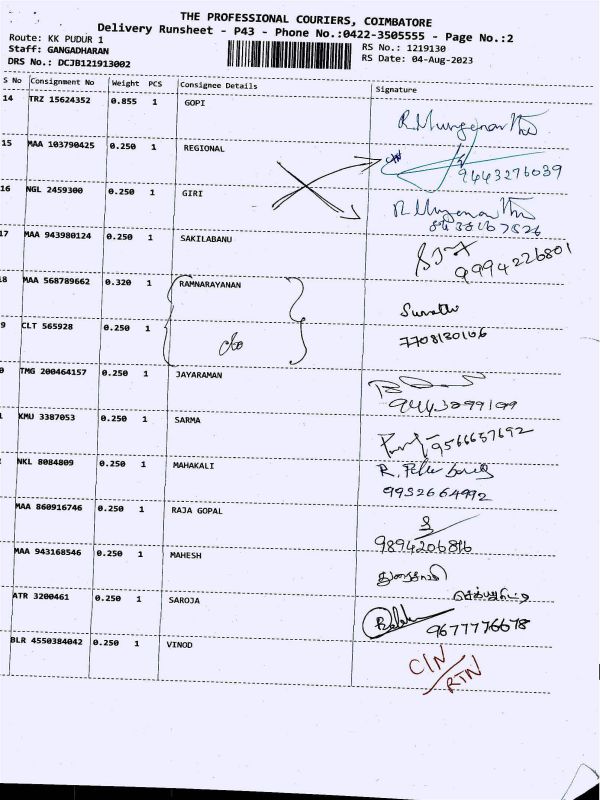 THE PROFESSIONAL COURIERS, COIMBATORE
Delivery Runsheet - P43 - Phone No.:0422-3505555 - Page No.:2
Route: KK PUDUR 1
RS No.: 1219130
Staff: GANGADHARAN
RS Date: 04-Aug-2023
DRS No.: DCJB121913002
S No Consignment No Weight PCS Consignee Details Signature
14 TRZ 15624352 0.855 1 GOPI
15 MAA 103790425 0.250 1 REGIONAL
9443276039
16 NGL 2459300 0.250 1 GIRI
17 MAA 943980124 0.250 1 SAKILABANU
9994226801
8 MAA 568789662 0.320 1 RAMNARAYANAN
9 CLT 565928 0.250 1
7708130166
0 TMG 200464157 0.250 1 JAYARAMAN
9443899199
KMU 3387053 0.250 1 SARMA
9566657692
NKL 8084809 0.250 1 MAHAKALI
9952664992
MAA 860916746 0.250 1 RAJA GOPAL
9894206816
MAA 943168546 0.250 1 MAHESH
ATR 3200461 0.250 1 SAROJA
9677776678
BLR 4550384042 0.250 1 VINOD
C/N/RTN